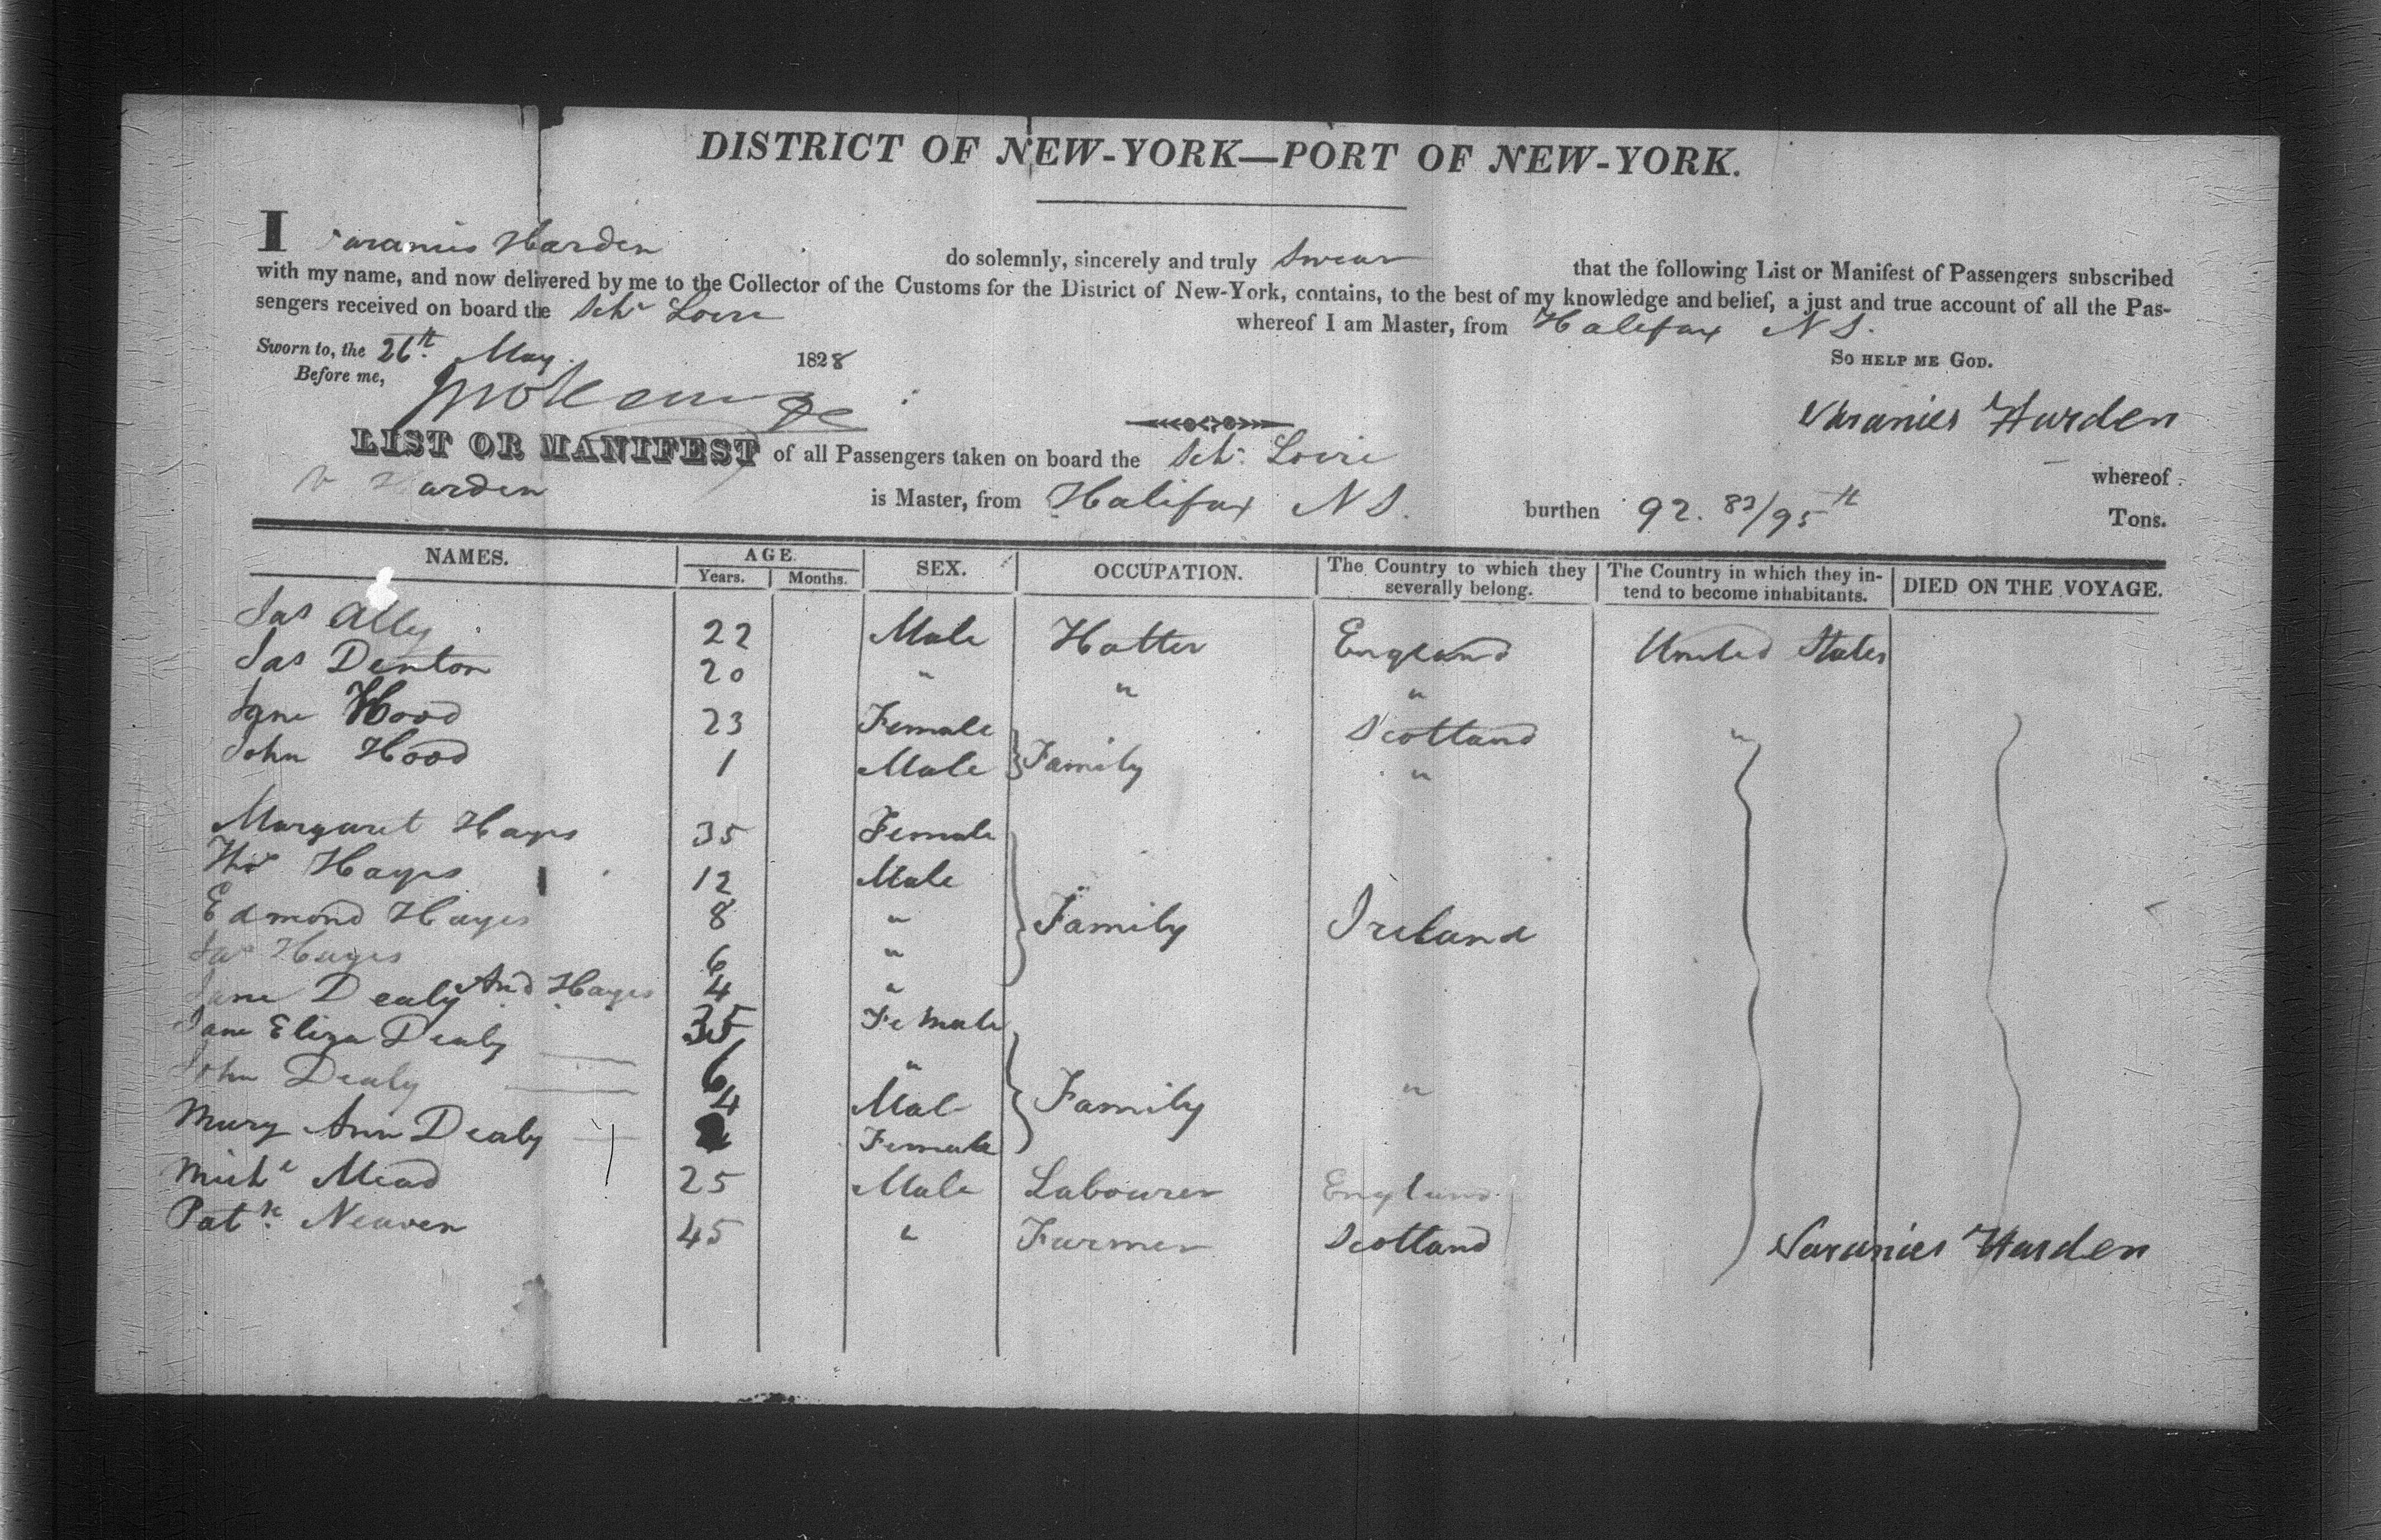 DISTRICT OF NEW-YORK—PORT OF NEW-YORK.
I Varanies Harden do solemnly, sincerely and truly swear that the following List or Manifest of Passengers subscribed
with my name, and now delivered by me to the Collector of the Customs for the District of New-York, contains, to the best of my knowledge and belief, a just and true account of all the Pas-
sengers received on board the Schr Loire whereof I am Master, from Halifax N S.
Sworn to, the 26th May 1828 SO HELP ME GOD.
Before me,
Varanies Harden
LIST OR MANIFEST of all Passengers taken on board the Schr Loire whereof
V Harden is Master, from Halifax N S. burthen 92. 83/95th Tons.
NAMES. AGE. SEX. OCCUPATION. The Country to which they severally belong. The Country in which they in-tend to become inhabitants. DIED ON THE VOYAGE.
Years. Months.
Jas Ally 22 Male Hatter England United States
Jas Denton 20 " " "
Jane Hood 23 Female Scotland "
John Hood 1 Male Family "
Margaret Hayes 35 Female
Thos Hayes 12 Male
Edmond Hayes 8 " Family Ireland
Jas Hayes 6 "
And Hayes 4 "
Jane Dealy 35 Female
Jane Eliza Dealy 6 "
John Dealy 4 Male Family "
Mary Ann Dealy Female
Michl Mead 25 Male Labourer England
Patk Neaven 45 " Farmer Scotland
Varanies Harden